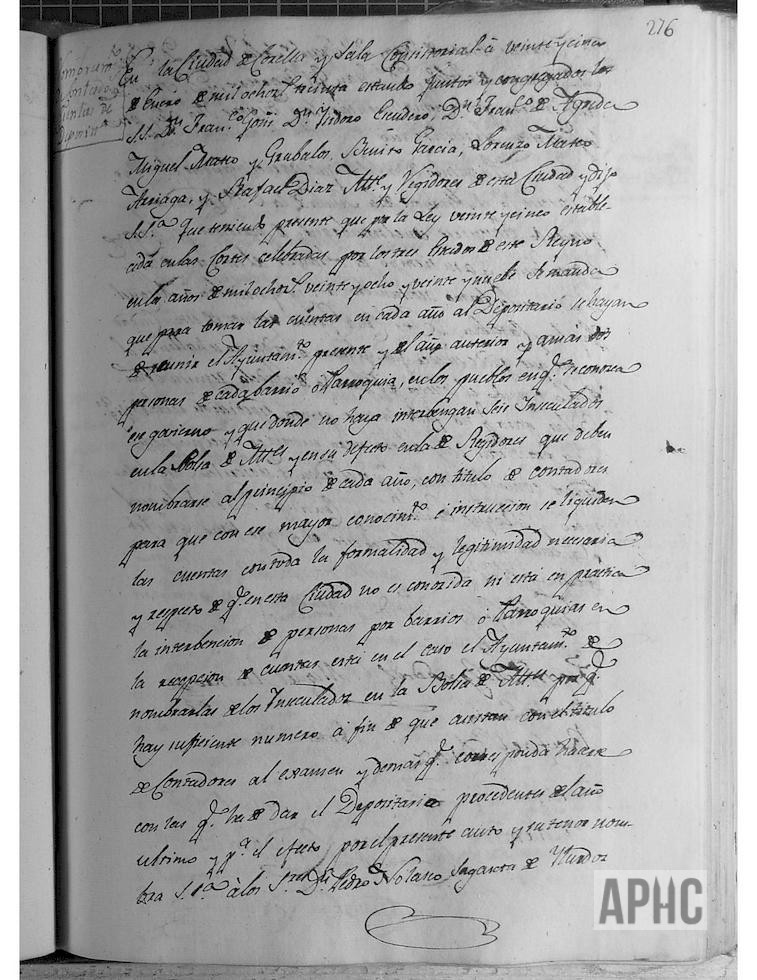 276
Nombram.to
de Contadores
Quentas de
Deposit.o
En la Ciudad de Corella y Sala Consistorial á veinte y cinco
de Enero de mil ochoc.s treinta estando juntos y congregados los
S.S. D.n Fran.co Goñi D.n Isidoro Escudero, D.n Fran.co de Agreda
Miguel Mateo y Grabalos, Benito Garcia, Lorenzo Mateo
Arriaga, y Rafael Diaz Alc.e y Regidores de esta Ciudad y dijo
S.S.a que teniendo presente que por la Ley veinte y cinco estable-
cida en las Cortes celebradas por los tres Estados de este Reyno
en los años de mil ochoc.s veinte y ocho y veinte y nuebe se manda
que para tomar las cuentas en cada año al Depositario se hayan
de reunir el Ayuntam.to presente y del año anterior y amas dos
personas de cada barrio ó Parroquia, en los pueblos en q.e se conozca
ese govierno y que donde no haya interbengan seis Inseculados
en la Bolsa de Alc.es y en su defecto en la de Regidores que deben
nombrarse al principio de cada año, con titulo de contadores
para que con ese mayor conocim.to é instruccion se liquiden
las cuentas con toda la formalidad y legitimidad necesaria
y respecto de q.e en esta Ciudad no es conocida ni está en practica
la interbencion de personas por barrios ó Parroquias en
la recepcion de cuentas está en el caso el Ayuntam.to de
nombrarlas de los Inseculados en la Bolsa de Alc.es por q.e
hay suficiente numero á fin de que asistan con el titulo
de Contadores al examen y demas q.e corresponda hacerse
con las q.e ha de dar el Depositario procedentes del año
ultimo y p.a el efecto por el presente auto y su tenor nom-
bra S.S.a á los S.res D.n Pedro Nolasco
APHC